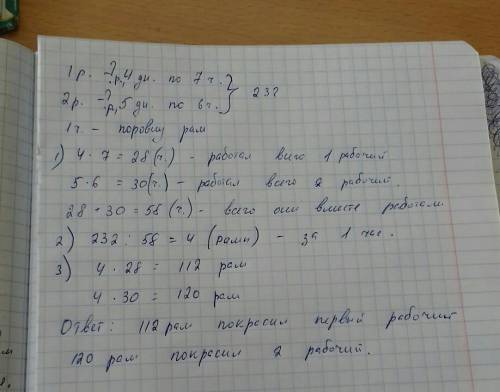 1р. - ? р, 4 дн. по 7 ч. } 232
2р. - ? р, 5 дн. по 6 ч.
1ч. - поровну рам
1) 4 · 7 = 28 (ч.) - работал всего 1 рабочий
5 · 6 = 30 (ч.) - работал всего 2 рабочий.
28 + 30 = 58 (ч.) - всего они вместе работали
2) 232 : 58 = 4 (рамы) - за 1 час.
3) 4 · 28 = 112 рам
4 · 30 = 120 рам
Ответ: 112 рам покрасил первый рабочий
120 рам покрасил 2 рабочий.